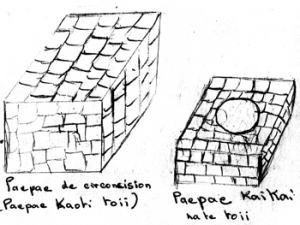 Paepae de circoncision
(Paepae Kaoti toii)
Paepae Kaikai
na te toii